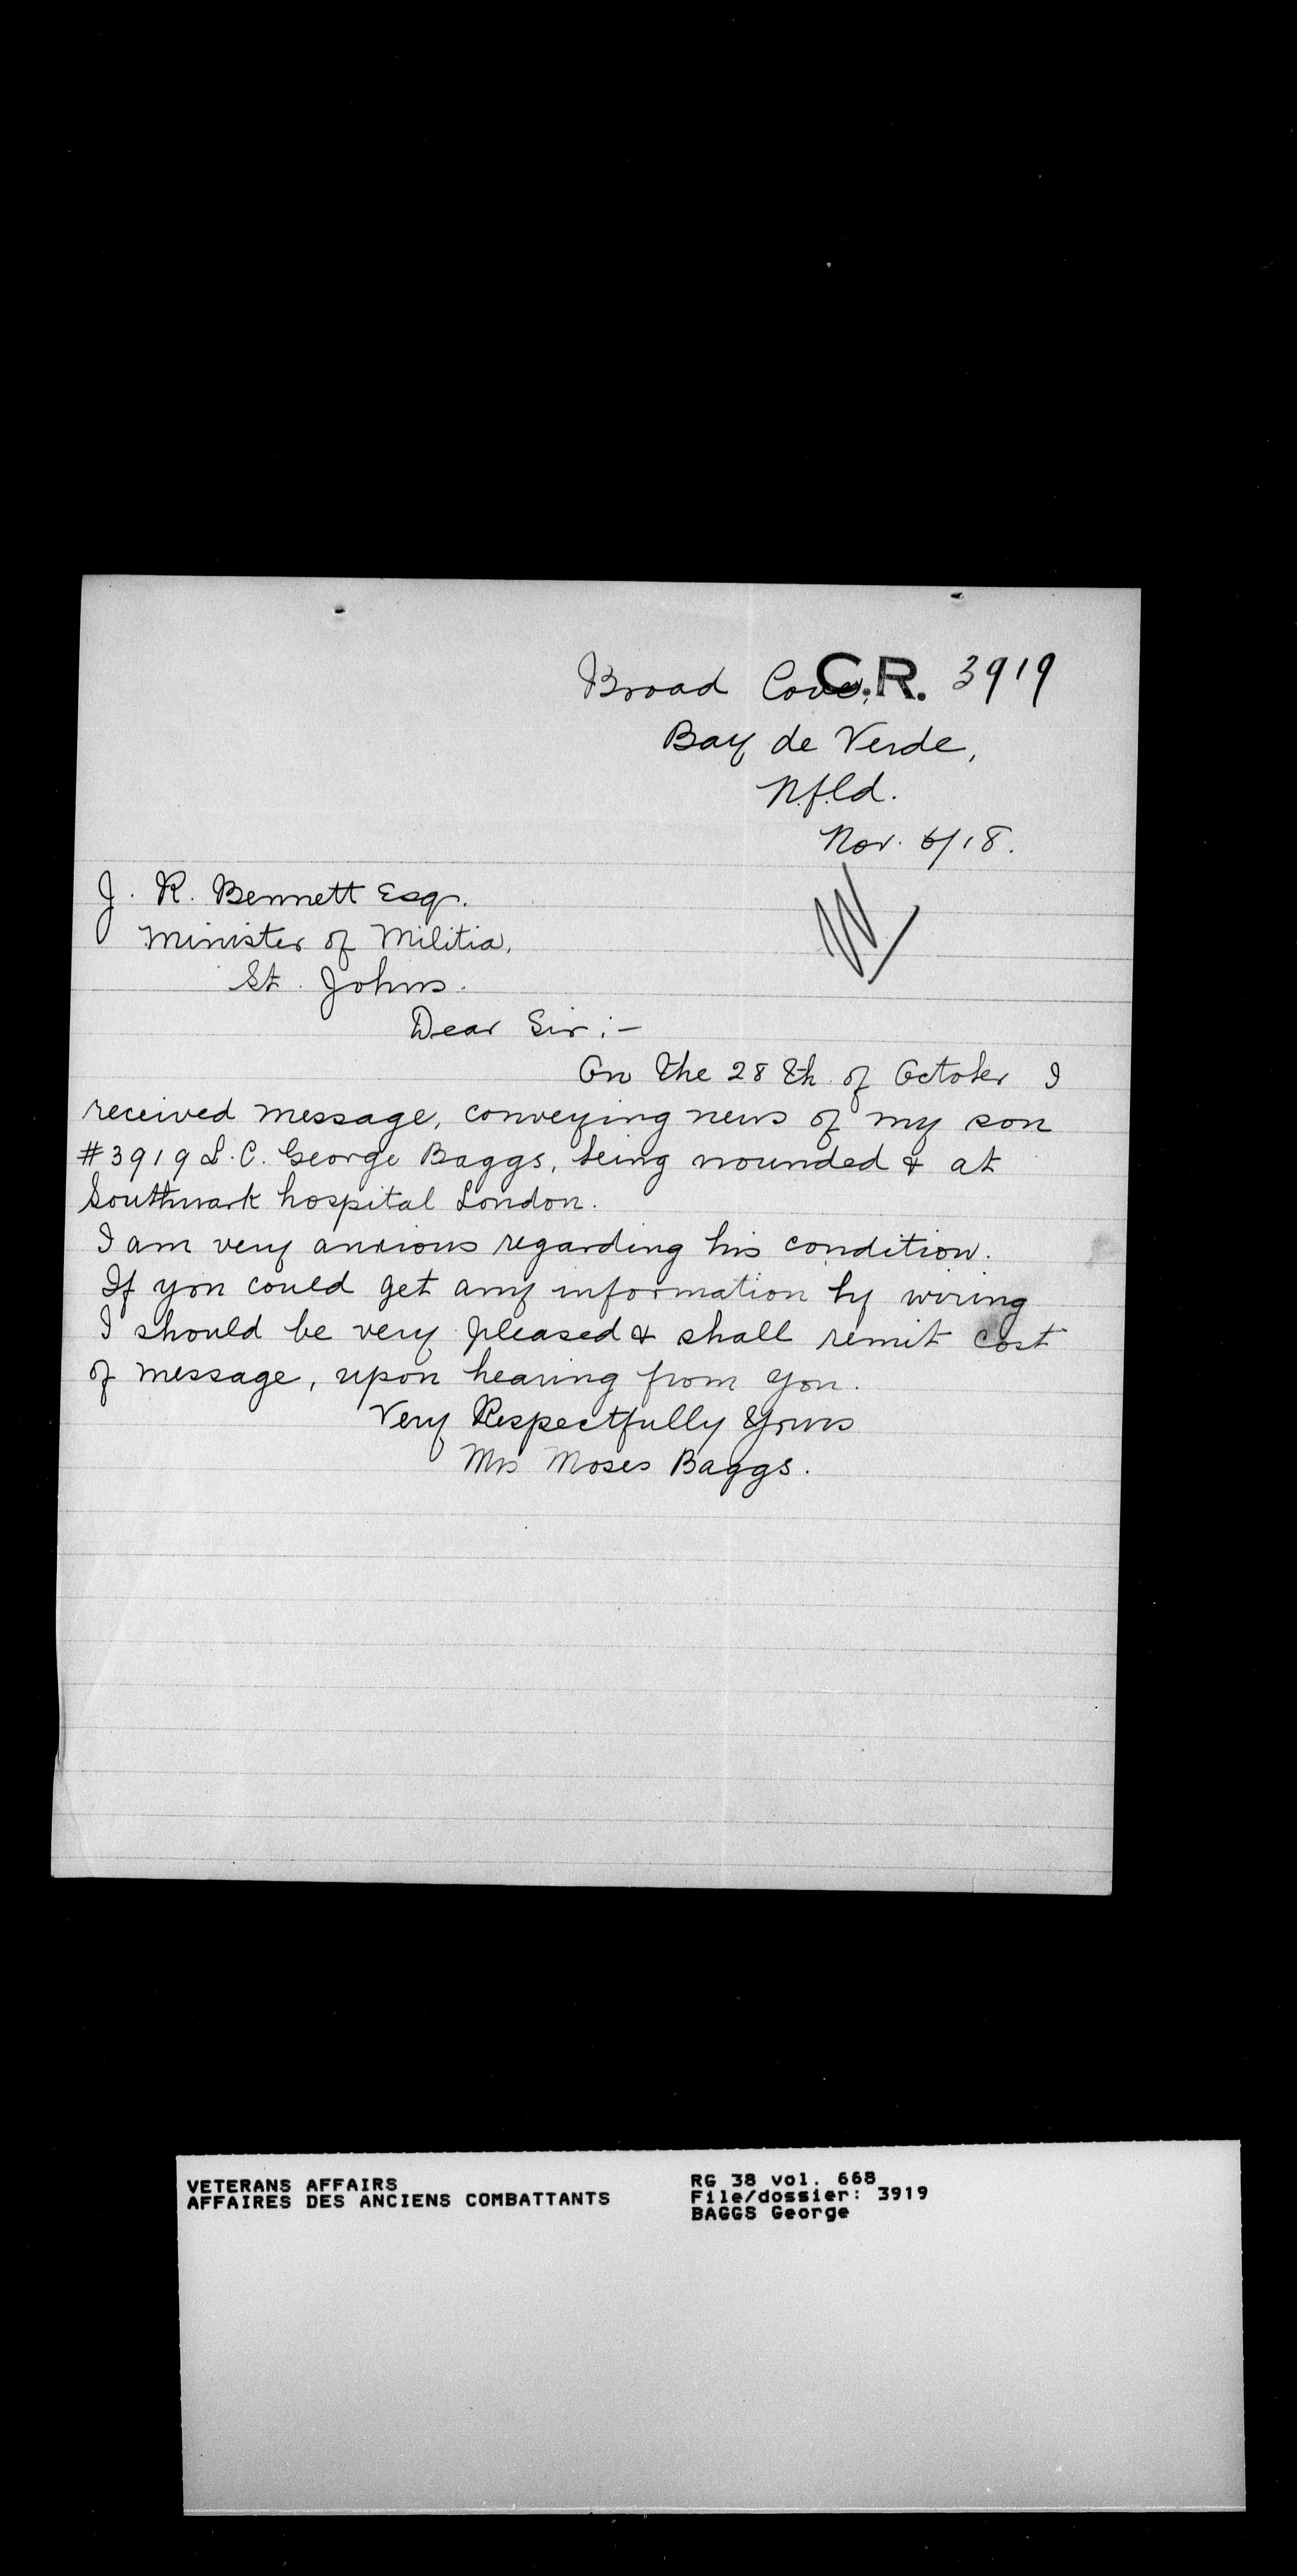 Broad Cove, C.R. 3919
Bay de Verde,
Nfld.
Nov. 6/18.
J. R. Bennett Esq.
Minister of Militia,
St. Johns.
Dear Sir:-
On the 28th of October I
received message, conveying news of my son
#3919 L.C. George Baggs, being wounded & at
Southwark hospital London.
I am very anxious regarding his condition.
If you could get any information by wiring
I should be very pleased & shall remit cost
of message, upon hearing from you.
Very Respectfully Yours
Mrs Moses Baggs.
VETERANS AFFAIRS
AFFAIRES DES ANCIENS COMBATTANTS
RG 38 vol. 668
File/dossier: 3919
BAGGS George